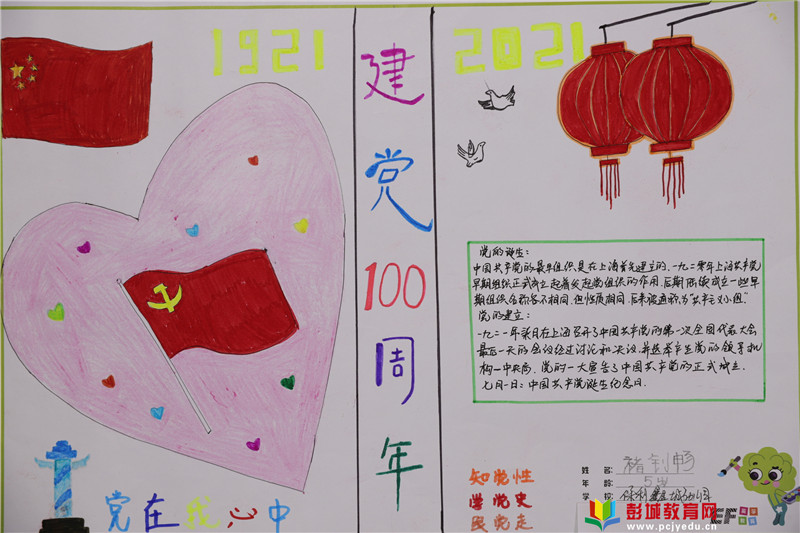 1921
建党100周年
2021
党的诞生:
中国共产党的最早组织是在上海首先建立的,一九二零年上海共产党
早期组织正式成立起着发起党组织的作用,后期陆续成立一些早
期组织名称各不相同,但性质相同,后来被通称为"共产主义小组"
党的建立:
一九二一年 在上海召开了中国共产党的第一次全国代表大会
最后一天的会议经过讨论和决议,并选举产生党的领导机
构—中央局,党的一大宣告了中国共产党的正式成立.
七月一日:中国共产党诞生纪念日.
党在我心中
知党性
学党史
跟党走
姓名: 褚钊畅
年龄: 5岁
学校: 保利鑫城幼儿园
彭城教育网
www.pcjyedu.cn
EF